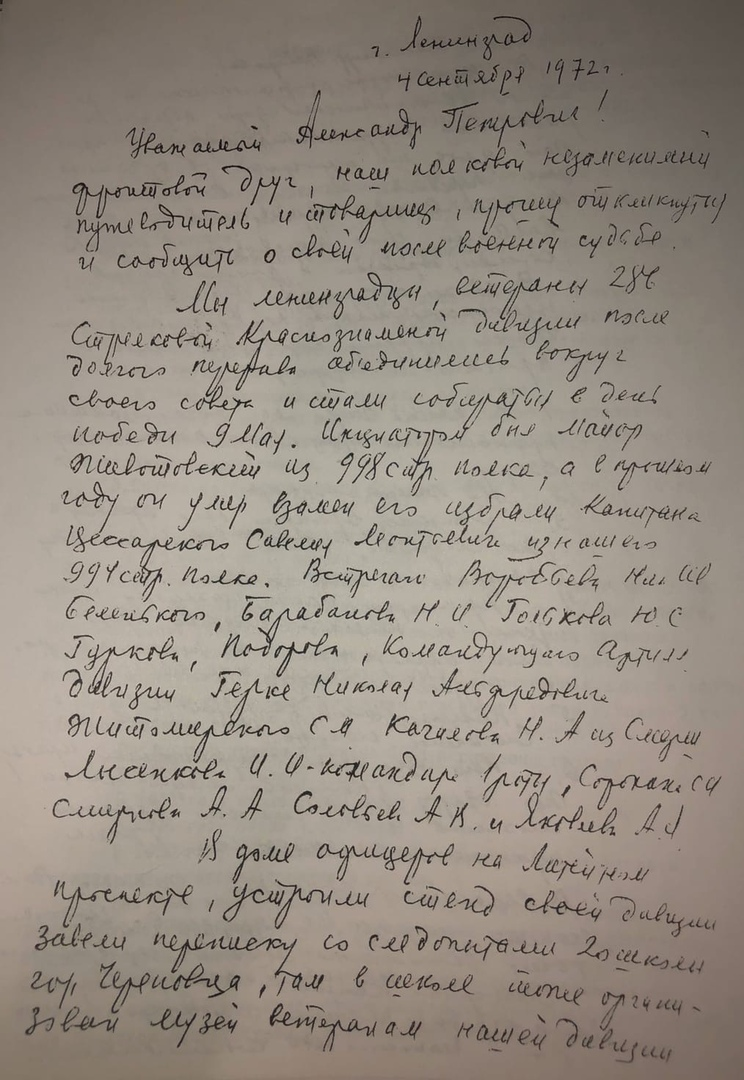 г. Ленинград
4 сентября 1972г.
Уважаемый Александр Петрович!
фронтовой друг, наш полковой незаменимий
путеводитель и товарищ, прошу откликнутся
и сообщить о своей после военной судьбе.
Мы ленинградцы, ветераны 286
Стрелковой Краснознаменой дивизии после
долгого перерыва объединились вокруг
своего совета и стали собиратся в день
победы 9 Мая. Инициатором был майор
Животовский из 998 стр. полка, а в прошлом
году он умер взамен его избрали Капитана
Цессарского Савелия Леонтьевича из нашего
994 стр. полка. Встречаю Воробьева
Беленького, Барабанова Н. И. Голькова Ю. С
Гуркова, Подорова, Командующего Артилл
дивизии Герке Николая Альфредовича
Житомирского С М Качалова Н. А из
Лысенкова И. И - командира 1 роты,
Смирнова А. А Соловьев А В. и Яковлева А.
В доме офицеров на Литейном
проспекте, устроили стенд своей дивизии
Завели переписку со следопытами 20 школы
гор. Череповца, там в школе тоже органи-
зован музей ветеранам нашей дивизии